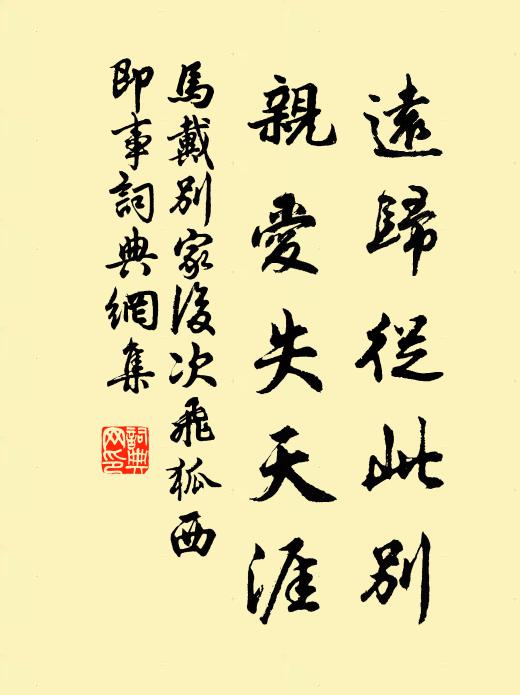 遠歸從此別
親愛失天涯
馬戴別家後次飛狐西
即事詞典網集
詞典
网印